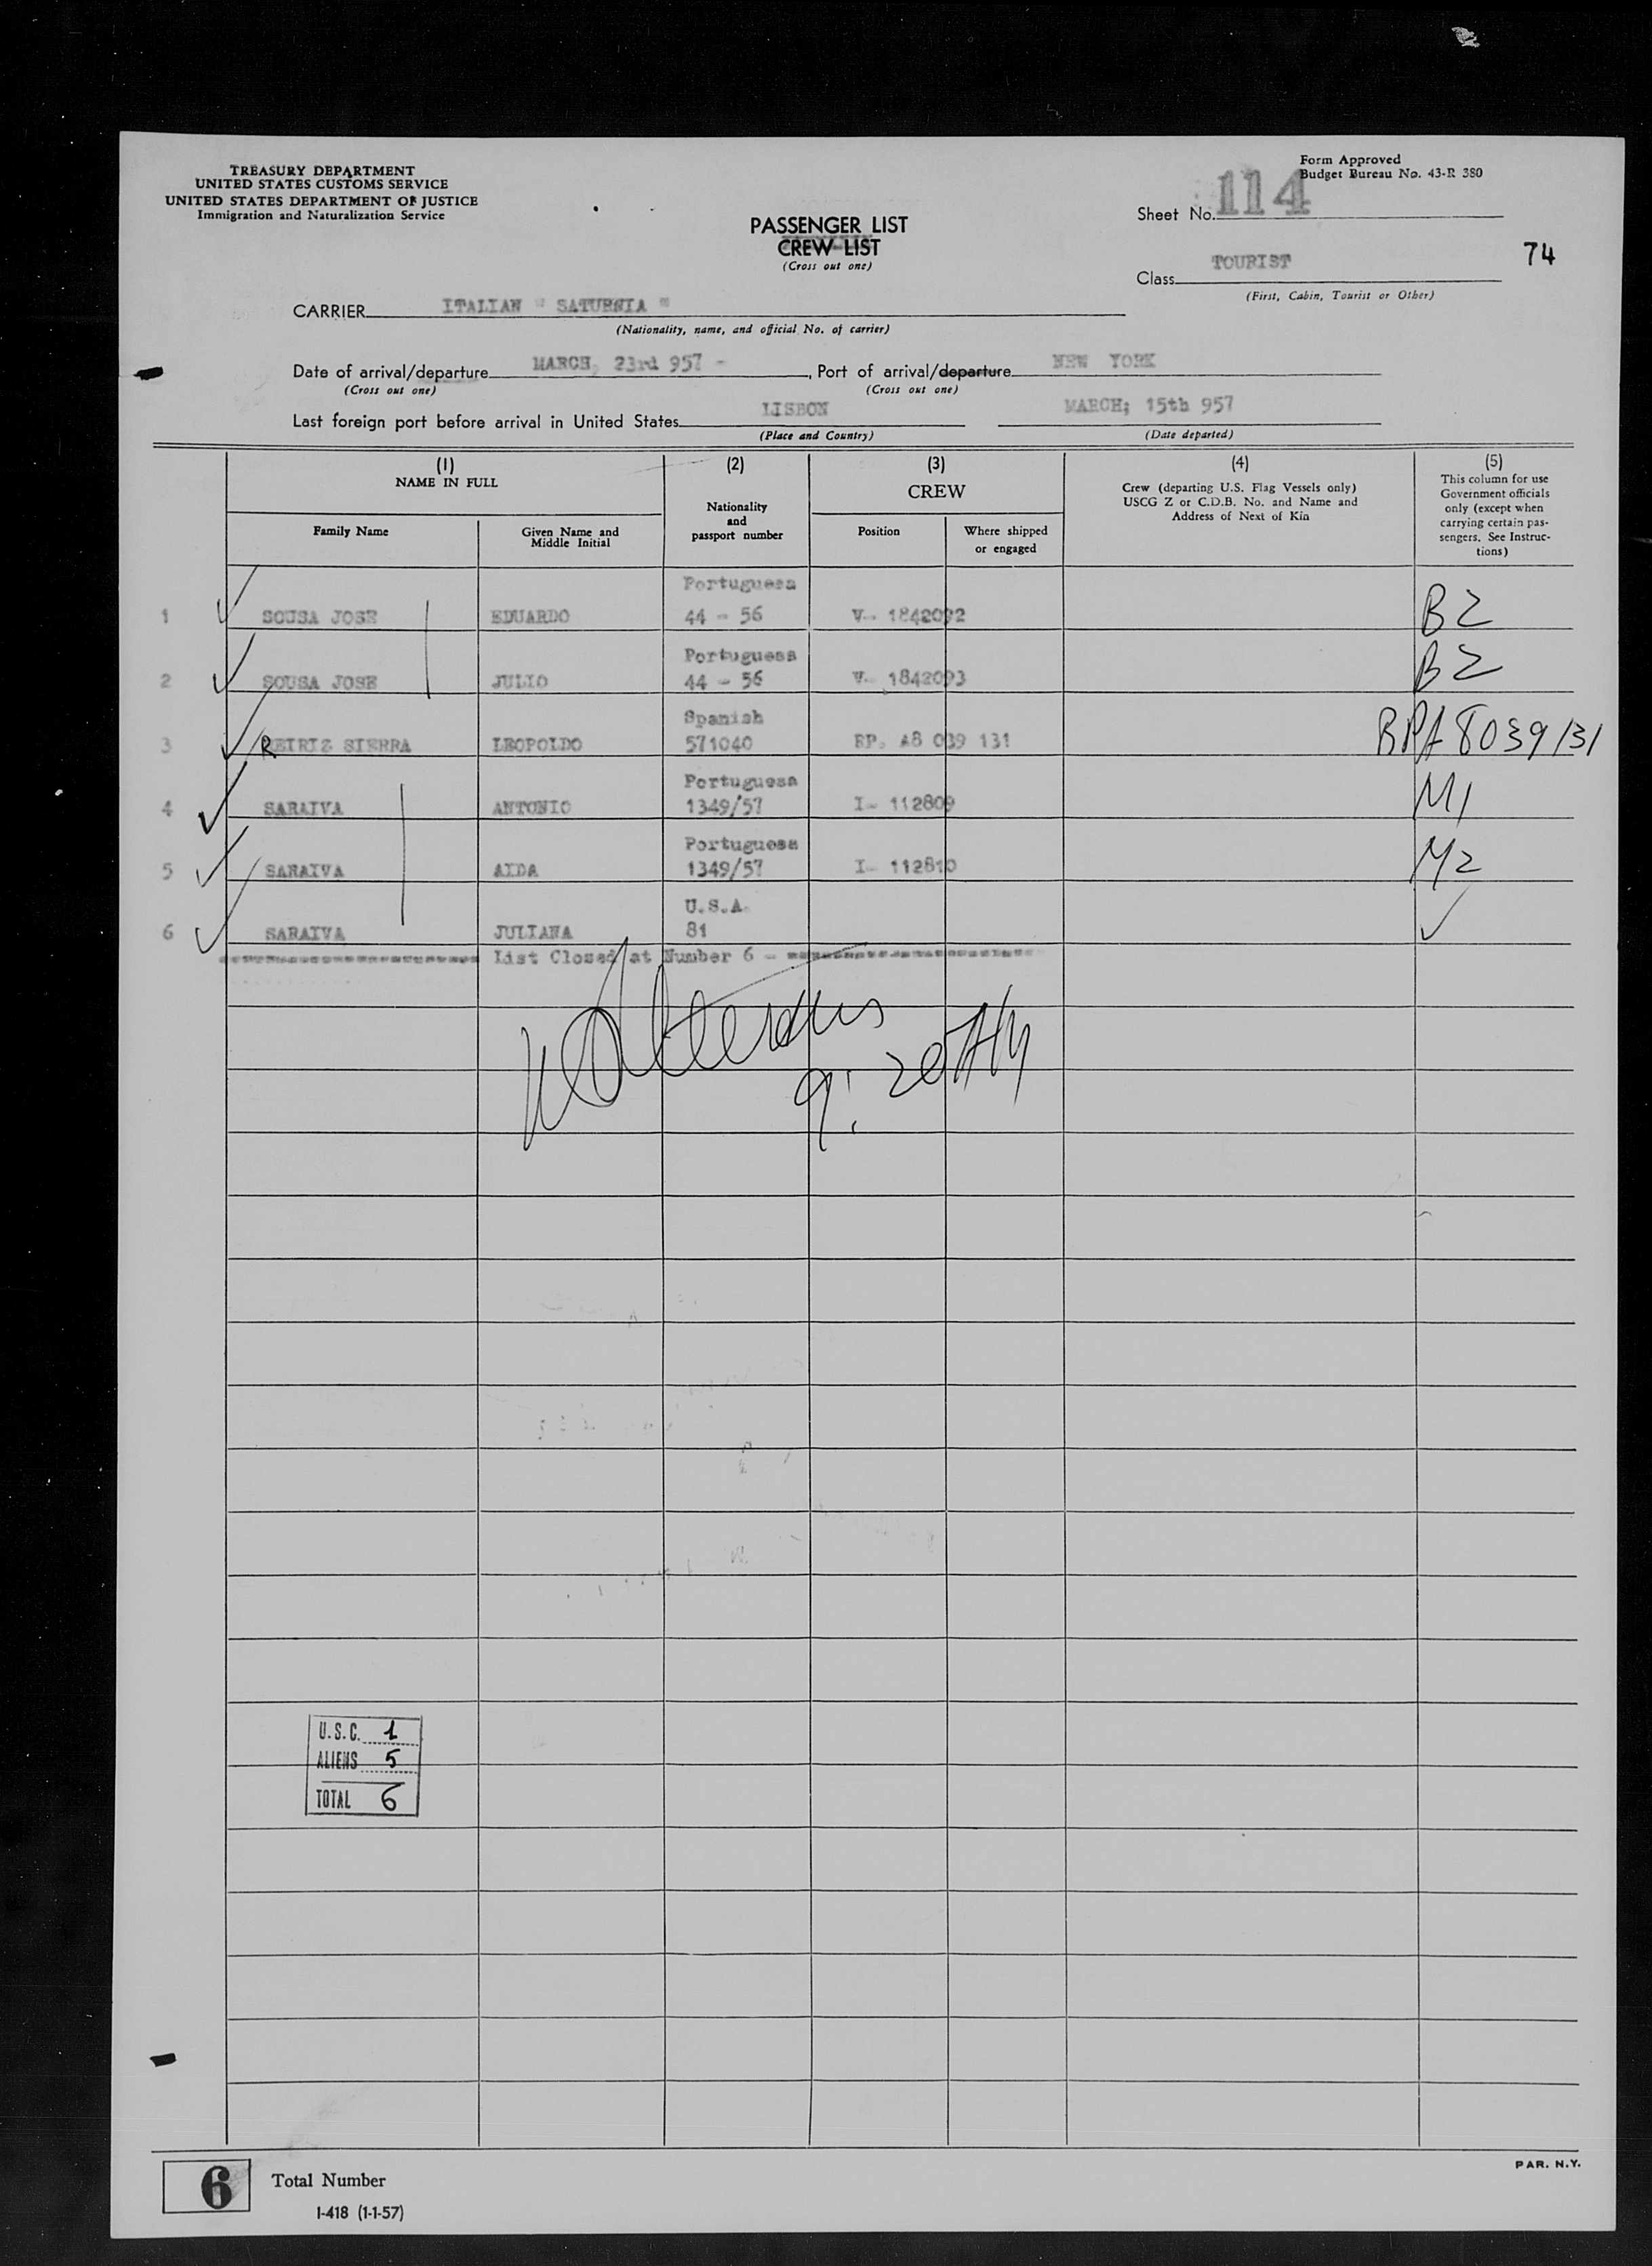 TREASURY DEPARTMENT
UNITED STATES CUSTOMS SERVICE
UNITED STATES DEPARTMENT OF JUSTICE
Immigration and Naturalization Service
Form Approved
Budget Bureau No. 43-R 380
Sheet No. 114
PASSENGER LIST
CREW LIST
(Cross out one)
74
Class TOURIST
(First, Cabin, Tourist or Other)
CARRIER ITALIAN " SATURNIA "
(Nationality, name, and official No. of carrier)
Date of arrival/departure MARCH, 23rd 957 - , Port of arrival/departure NEW YORK
(Cross out one) (Cross out one)
Last foreign port before arrival in United States LISBON MARCH; 15th 957
(Place and Country) (Date departed)
(1) (2) (3) (4) (5)
NAME IN FULL
Family Name
Given Name and
Middle Initial
Nationality
and
passport number
CREW
Position
Where shipped
or engaged
Crew (departing U.S. Flag Vessels only)
USCG Z or C.D.B. No. and Name and
Address of Next of Kin
This column for use
Government officials
only (except when
carrying certain pas-
sengers. See Instruc-
tions)
Portuguesa
1 SOUSA JOSE EDUARDO 44 - 56 V- 1842092 B2
Portuguesa
2 SOUSA JOSE JULIO 44 - 56 V- 1842093 B2
Spanish
3 REIRIZ SIERRA LEOPOLDO 571040 RP. A8 039 131 RPA 8039131
Portuguesa
4 SARAIVA ANTONIO 1349/57 I- 112809 M1
Portuguesa
5 SARAIVA AIDA 1349/57 I- 112810 M2
U.S.A.
6 SARAIVA JULIANA 81
List Closed at Number 6 -
9:20 AM
U.S.C. 1
ALIENS 5
TOTAL 6
6 Total Number
I-418 (1-1-57)
PAR. N.Y.